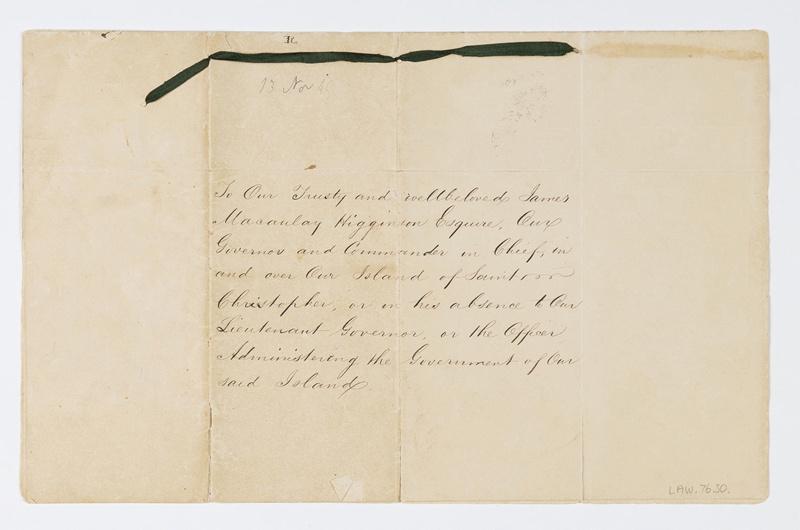 13 Nov
To Our Trusty and wellbeloved James
Macaulay Higginson Esquire, Our
Governor and Commander in Chief, in
and over Our Island of Saint
Christopher, or in his absence to Our
Lieutenant Governor, or the Officer
Administering the Government of Our
said Island
LAW.7630.